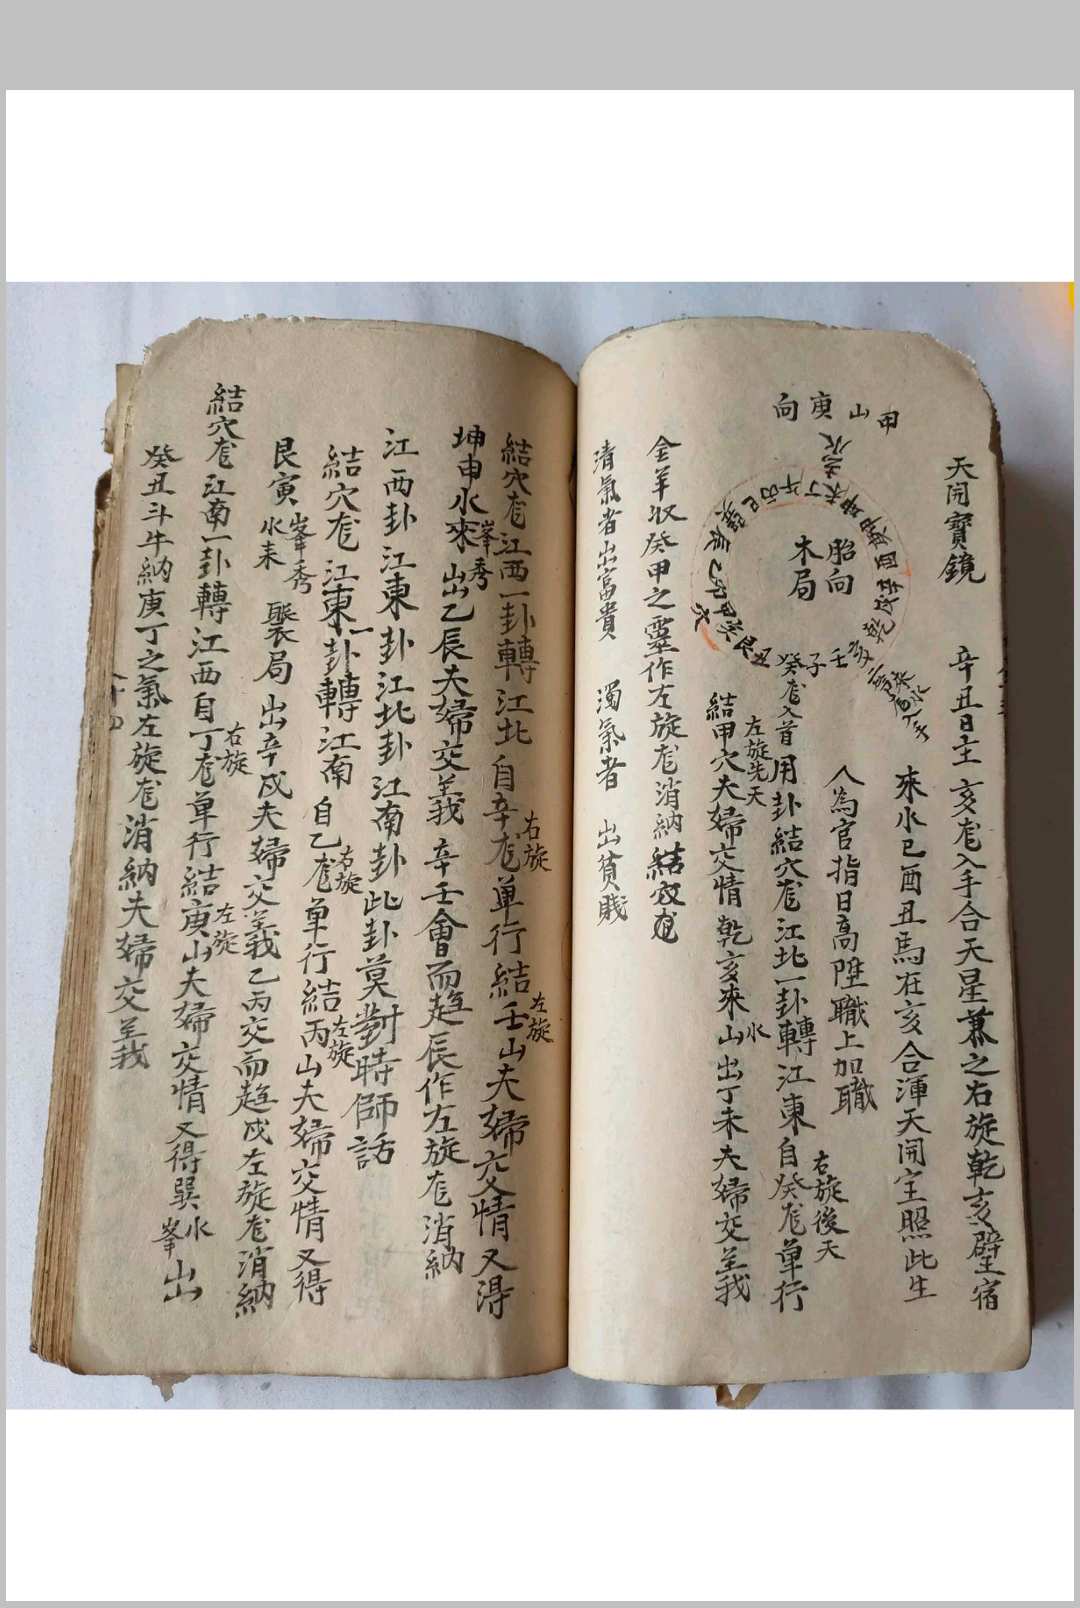 天開寶鏡
辛丑日主 亥龙入手合天星兼之右旋乾亥壁宿
來水巳酉丑馬在亥合渾天開宝照此生
人為官指日高陞職上加職
甲山庚向
水
胎向
木局
丁午丙巳巽辰乙卯甲
乾亥壬子癸
龙入首
用卦結穴龙江北一卦轉江東自癸龙单行
右旋後天
左旋先天
結甲穴夫婦交情乾亥來山出丁未夫婦交义我
水
金羊收癸甲之靈作左旋龙消納結穴龙
清氣者出富貴 濁氣者 出貧賤
結穴龙江西一卦轉江北自辛龙单行結壬山夫婦交情又得
右旋
左旋
坤申水來峯秀出乙辰夫婦交義辛壬會而趋辰作左旋龙消納
江西卦江東卦江北卦江南卦此卦莫對時師話
結穴龙江東一卦轉江南自乙龙单行結丙山夫婦交情又得
右旋
左旋
艮寅水來峯秀襲局出辛戍夫婦交義乙丙交而趋戍左旋龙消納
結穴龙江南一卦轉江西自丁龙单行結庚山夫婦交情又得巽水峯出
右旋
左旋
癸丑斗牛納庚丁之氣左旋龙消納夫婦交義